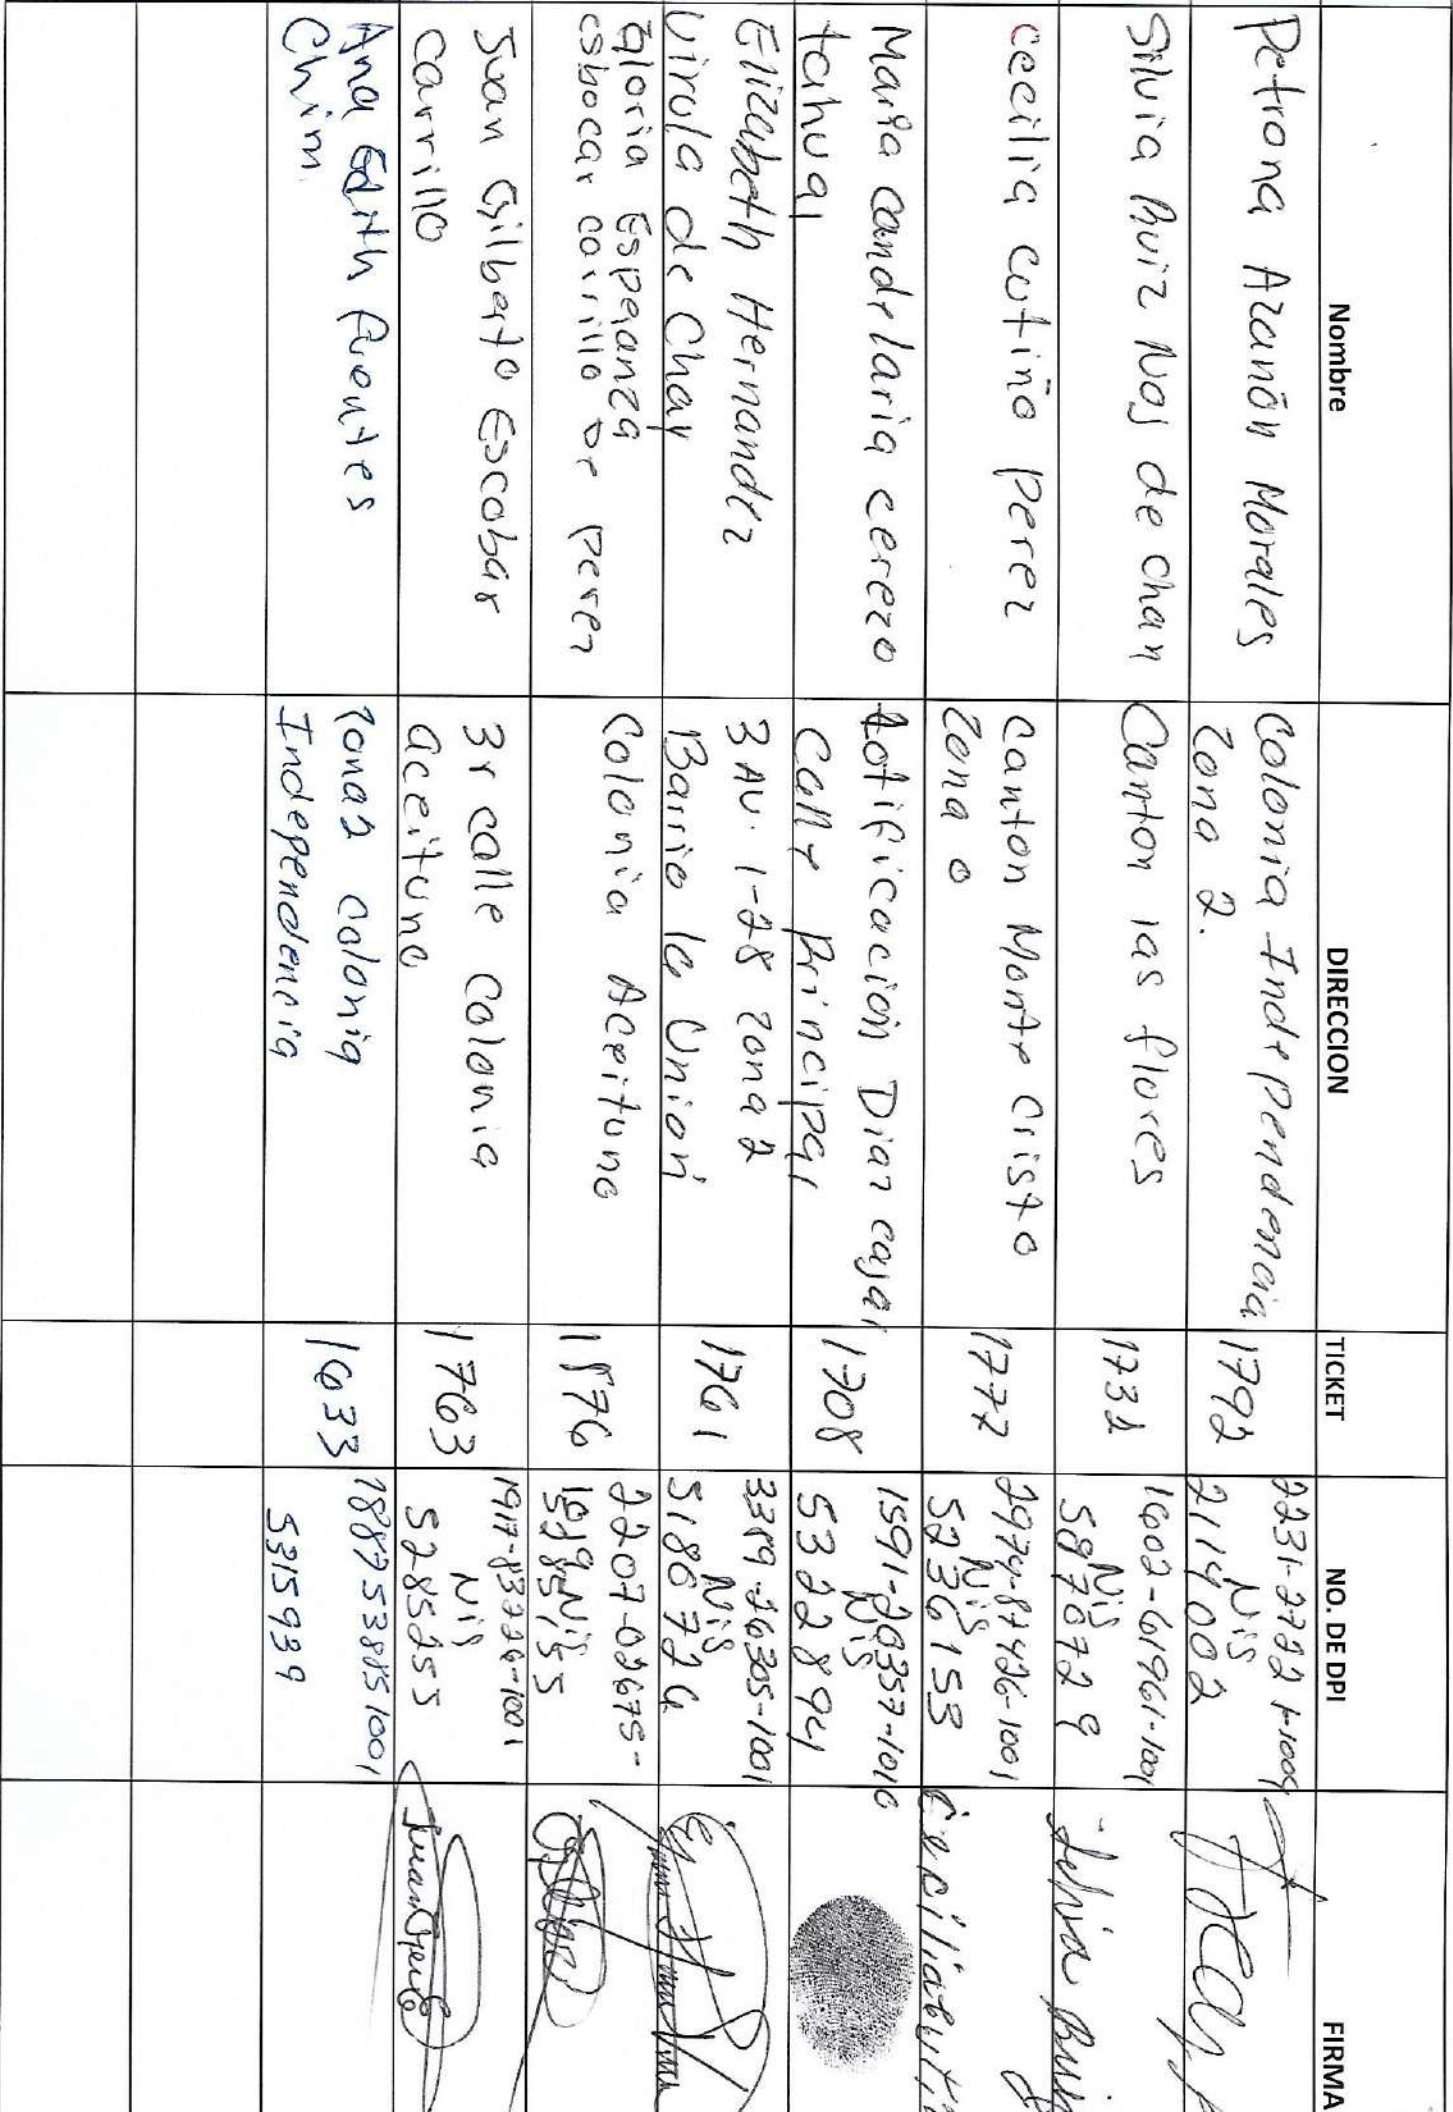 Nombre DIRECCION TICKET NO. DE DPI FIRMA
Petrona Azanón Morales
Colonia Independencia
Zona 2.
1792
Nis
2114002
Silvia Ruiz Noj de chan
Canton las flores
1732
1602-61961-1001
Nis
Silvia
cecilia cutiño perez
Canton Monte Cristo
Zona 0
1777
2974-87426-1001
Nis
5236153
Maria candelaria cerezo
tahual
Lotificación Diaz cajal
Calle Principal
1708
Nis
5322894
Elizabeth Hernandez
Virula de Chay
3 AV. 1-28 zona 2
Barrio la Unión
1761
3389-26305-1001
Nis
5186724
gloria Esperanza
esbocar carrillo de perez
Colonia Aceituno
1576
2207-02675-
Nis
Juan Gilberto Escobar
Carrillo
3r calle Colonia
aceituno
1763
1917-83226-1001
Nis
5285255
Ana Edith fuentes
Chim
zona2 colonia
Independencia
1633
1887538851001
5315939